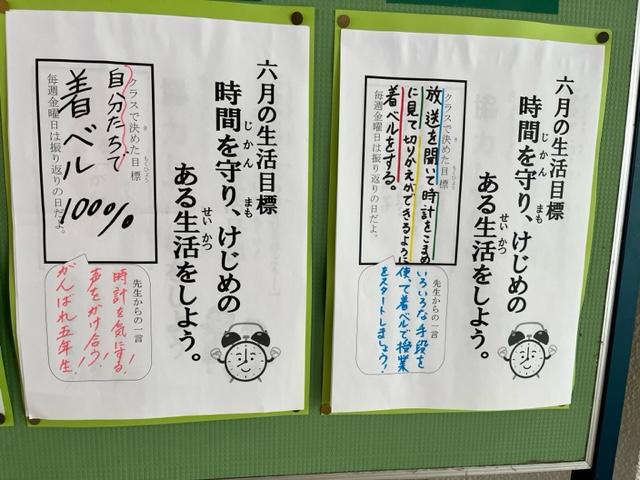 六月の生活目標
時間を守り、けじめの
じかん
まも
ある生活をしよう。
せいかつ
クラスで決めた目標
き
もくひょう
自分たちで
着ベル
100%
毎週金曜日は振り返りの日だよ。
先生からの一言
時計を気にする!
声をかけ合う!
がんばれ五年生!
六月の生活目標
時間を守り、けじめの
じかん
まも
ある生活をしよう。
せいかつ
クラスで決めた目標
き
もくひょう
放送を聞いて時計をこまめ
に見て切りかえができるように
着ベルをする。
毎週金曜日は振り返りの日だよ。
先生からの一言
いろいろな手段を
使って着ベルで授業
をスタートしましょう!